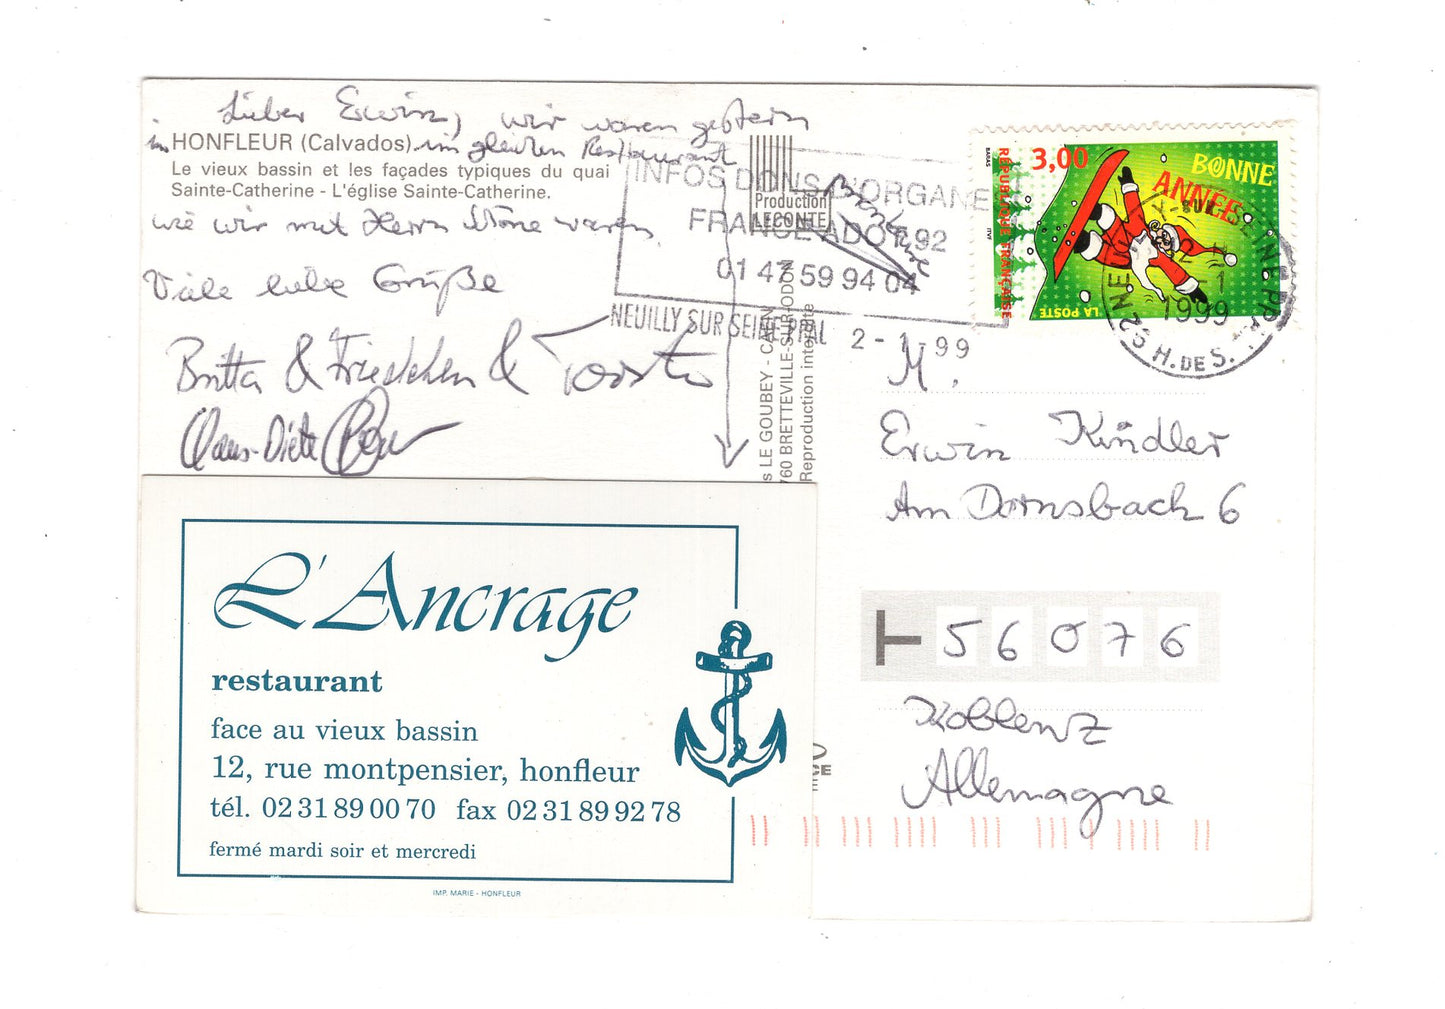 Lieber Erwin, wir waren gestern
in HONFLEUR (Calvados) im gleichen Restaurant
Le vieux bassin et les façades typiques du quai
Sainte-Catherine - L'église Sainte-Catherine.
wie wir mit Herrn waren.
Viele liebe Grüße
Britta & Friedchen &
Claus-Dieter
Production
LECONTE
INFOS DONS D'ORGANE
FRANCE ADOT 92
01 47 59 94 04
NEUILLY SUR SEINE PPAL 2-1-99
LE GOUBEY - CAEN
760 BRETTEVILLE-SUR-ODON
Reproduction interdite
3,00
BONNE
ANNÉE
RÉPUBLIQUE FRANÇAISE
LA POSTE
BARAS
ITVF
NEUILLY SUR SEINE PPAL
2-1
1999
H. DE S.
M.
Erwin Kindler
Am Dornsbach 6
56076
Koblenz
Allemagne
L'Ancrage
restaurant
face au vieux bassin
12, rue montpensier, honfleur
tél. 02 31 89 00 70 fax 02 31 89 92 78
fermé mardi soir et mercredi
IMP. MARIE - HONFLEUR